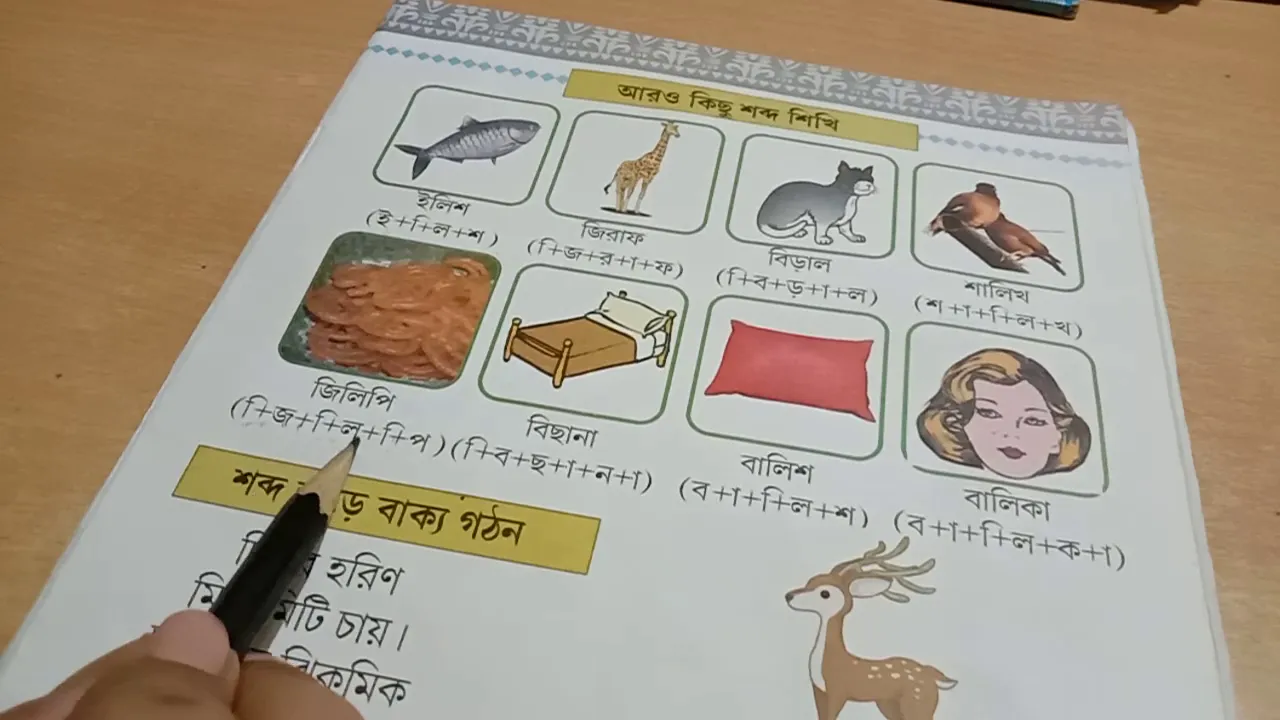 আরও কিছু শব্দ শিখি
ইলিশ
(ই+ি+ল+শ)
জিরাফ
(ি+জ+র+া+ফ)
বিড়াল
(ি+ব+ড়+া+ল)
শালিখ
(শ+া+ি+ল+খ)
জিলিপি
(ি+জ+ি+ল+ি+প)
বিছানা
(ি+ব+ছ+া+ন+া)
বালিশ
(ব+া+ি+ল+শ)
বালিকা
(ব+া+ি+ল+ক+া)
শব্দ বাক্য গঠন
হরিণ
চায়।
ঝিকমিক